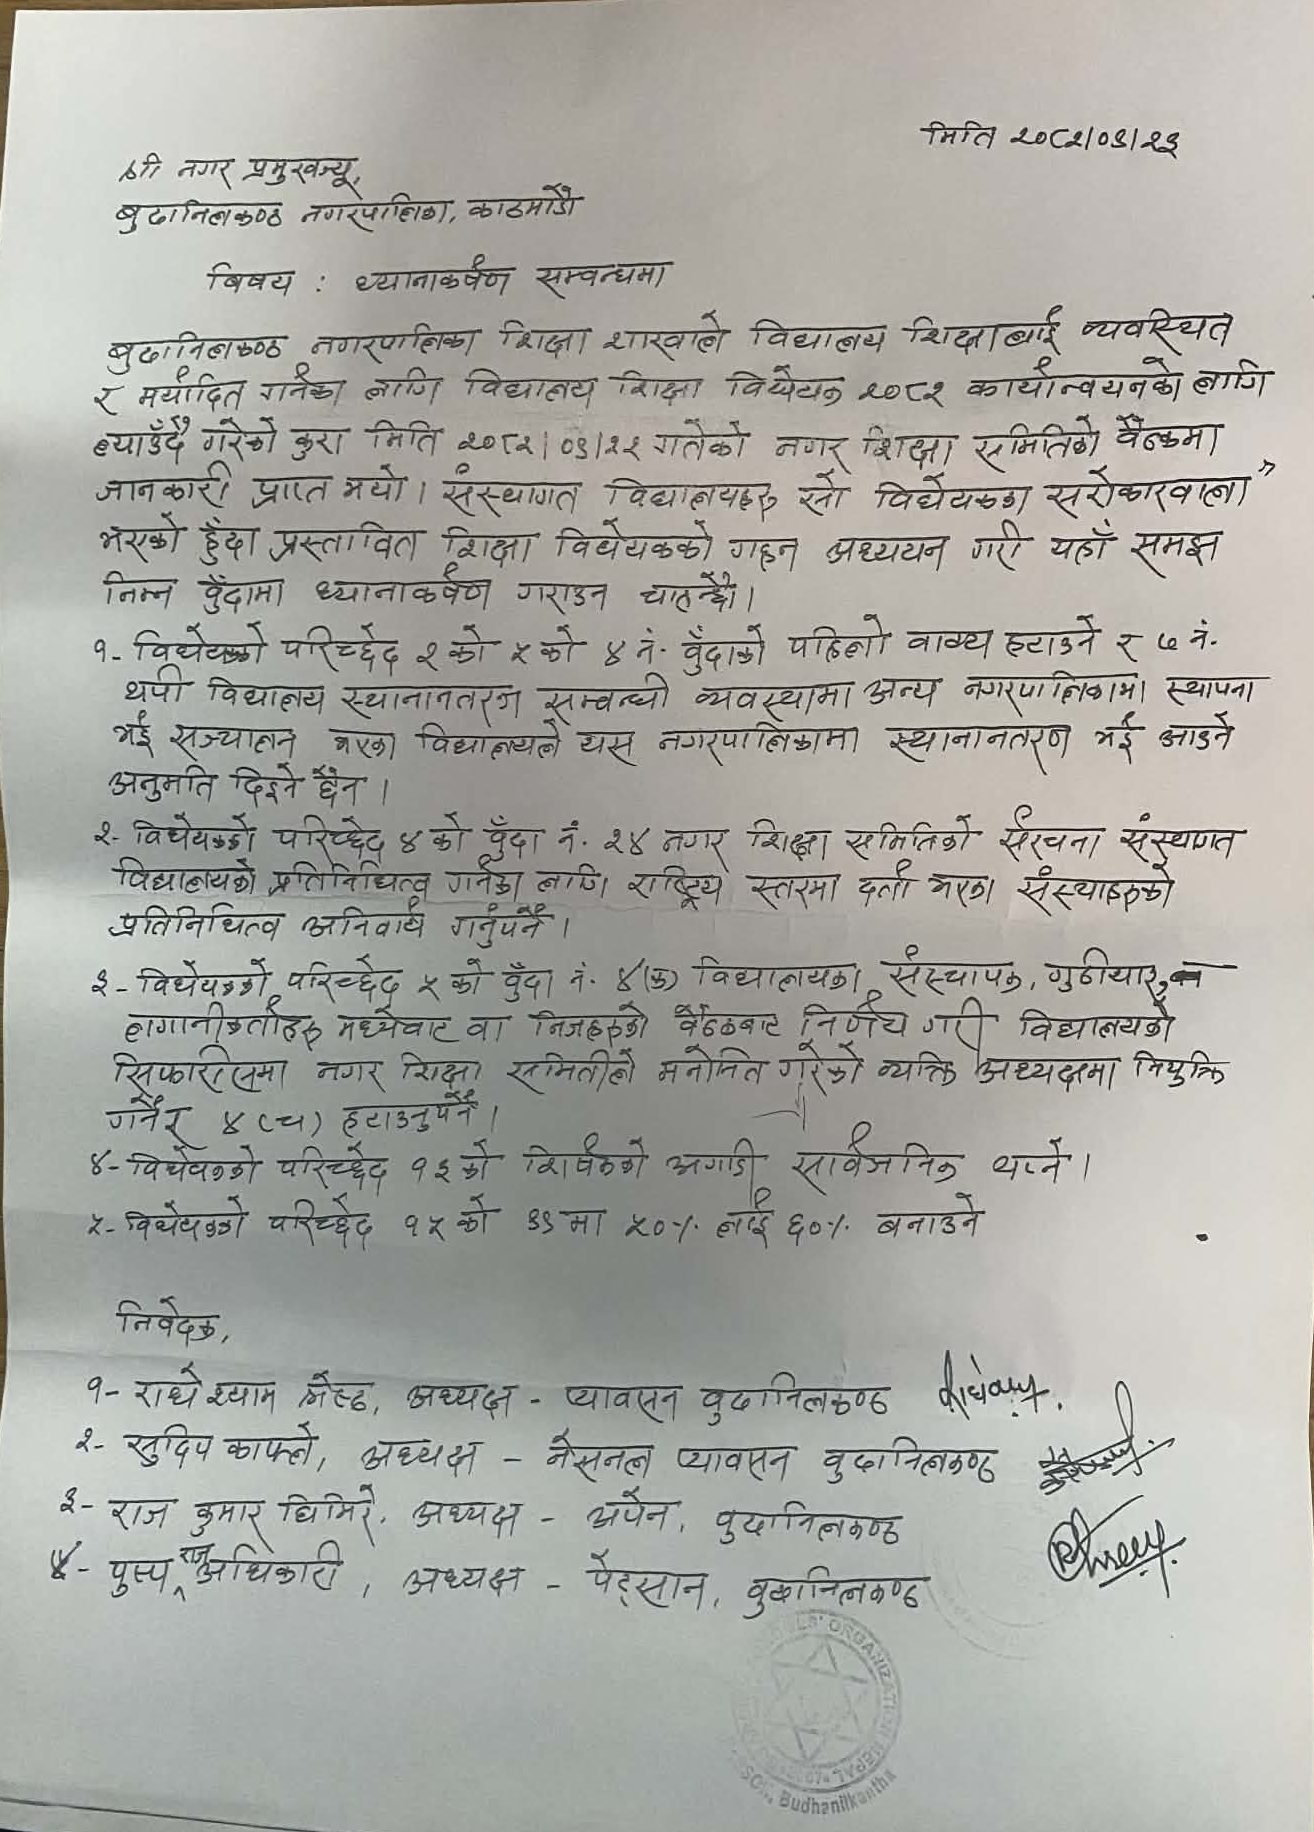 मिति २०८२/०९/२३
श्री नगर प्रमुखज्यू,
बुढानिलकण्ठ नगरपालिका, काठमाडौं
बिषय : ध्यानाकर्षण सम्वन्धमा
बुढानिलकण्ठ नगरपालिका शिक्षा शाखाले विद्यालय शिक्षालाई व्यवस्थित
र मर्यादित गर्नका लागि विद्यालय शिक्षा विधेयक २०८२ कार्यान्वयनको लागि
ल्याउँदै गरेको कुरा मिति २०८२/०९/२२ गतेको नगर शिक्षा समितिको बैठकमा
जानकारी प्राप्त भयो। संस्थागत विद्यालयहरु सो विधेयकका सरोकारवाला
भएको हुँदा प्रस्तावित शिक्षा विधेयकको गहन अध्ययन गरी यहाँ समक्ष
निम्न वुँदामा ध्यानाकर्षण गराउन चाहन्छौ।
१- विधेयकको परिच्छेद २ को ५ को ४ नं. वुँदाको पहिलो वाक्य हटाउने र ७ नं.
थपी विद्यालय स्थानानतरण सम्वन्धी व्यवस्थामा अन्य नगरपालिकामा स्थापना
भई सञ्चालन भएका विद्यालयले यस नगरपालिकामा स्थानानतरण भई आउने
अनुमति दिइने छैन।
२- विधेयकको परिच्छेद ४ को वुँदा नं. २४ नगर शिक्षा समितिको संरचना संस्थागत
विद्यालयको प्रतिनिधित्व गर्नका लागि राष्ट्रिय स्तरमा दर्ता भएका संस्थाहरुको
प्रतिनिधित्व अनिवार्य गर्नुपर्ने।
३- विधेयकको परिच्छेद ५ को वुँदा नं. ४(क) विद्यालयका संस्थापक, गुठीयार,
लगानीकर्ताहरु मध्येवाट वा निजहरुको बैठकबाट निर्णय गरी विद्यालयको
सिफारीसमा नगर शिक्षा समितीले मनोनित गरेको व्यक्ति अध्यक्षमा नियुक्ति
गर्ने र ४(च) हटाउनुपर्ने।
४- विधेयकको परिच्छेद १३ को शिर्षकको अगाडी सार्वजनिक थप्ने।
५- विधेयकको परिच्छेद १५ को ३९ मा ५०% लाई ६०% बनाउने
निवेदक,
१- राधे श्याम श्रेष्ठ, अध्यक्ष - प्यावसन वुढानिलकण्ठ
२- सुदिप काफ्ले, अध्यक्ष - नेसनल प्यावसन वुढानिलकण्ठ
३- राज कुमार घिमिरे, अध्यक्ष - अपेन, वुढानिलकण्ठ
४- पुस्प राज अधिकारी, अध्यक्ष - पेट्सान, वुढानिलकण्ठ
ORGANIZATION NEPAL
Budhanilkantha